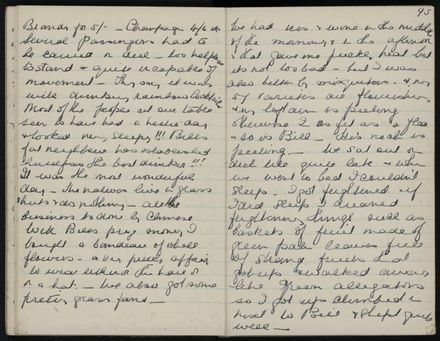 Brandy for 5/- — Champagne 4/6 &
Several Passengers had to
be carried on deck — too helpless
to stand & quite incapable of
movement — They say it was
with drinking
Most of the people at our table
seem to have had a hectic day
& looked very sleepy!!! Bill's
fat neighbour has
herself as the best drinker!!!
It was the most wonderful
day — The natives live in grass
huts & do nothing — all the
business is done by Chinese
With Bill's prize money I
bought a bandeau of shell
flowers — a very pretty affair
to wear around the hair or
on a hat — We also got some
pretty grass fans —
43
We had tea & wine in the middle
of the morning & in the afternoon
that gave me
its not too bad — but I was
also bitten by mosquitoes — & my
5/- varieties are flourishing
& left arm is peeling
Otherwise I as fit as a flea
— so is Bill — His neck is
peeling — We sat out on
deck till quite late & when
we went to bed I couldn't
sleep — I got frightened & if
I did sleep I dreamed
frightening things such as
baskets of fruit made of
green palm leaves full
of strange fruits that
got up & walked away
like green alligators
so I got up climbed in
next to Bill & slept quite
well —